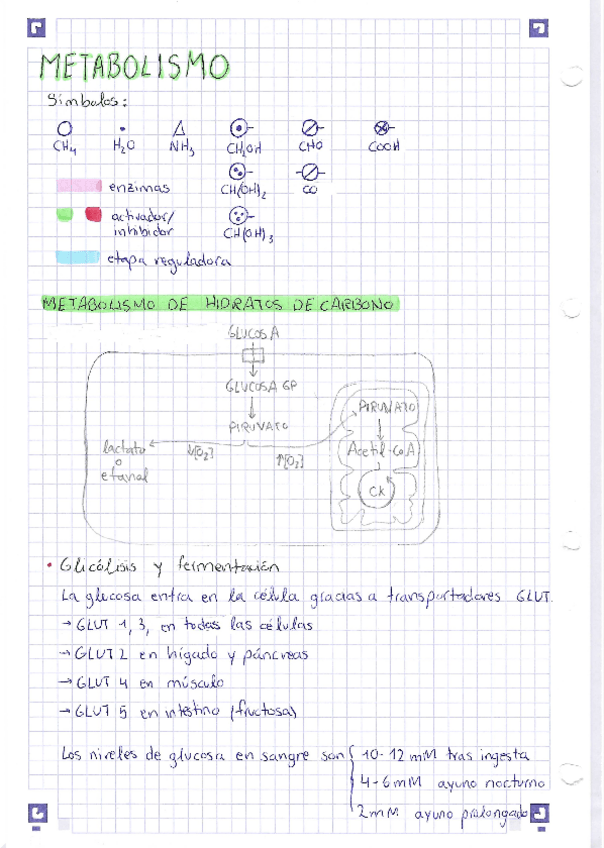 METABOLISMO
Símbolos:
CH4 H2O NH3 CH2OH CHO COOH
enzimas CH(OH)2 CO
activador/
inhibidor CH(OH)3
etapa reguladora
METABOLISMO DE HIDRATOS DE CARBONO
GLUCOSA
GLUCOSA 6P
PIRUVATO
PIRUVATO
lactato
o
etanol
↓[O2]
↑[O2]
Acetil-CoA
CK
• Glicólisis y fermentación
La glucosa entra en la célula gracias a transportadores GLUT.
→ GLUT 1, 3, en todas las células
→ GLUT 2 en hígado y páncreas
→ GLUT 4 en músculo
→ GLUT 5 en intestino (fructosa)
Los niveles de glucosa en sangre son { 10-12 mM tras ingesta
4-6 mM ayuno nocturno
2 mM ayuno prolongado